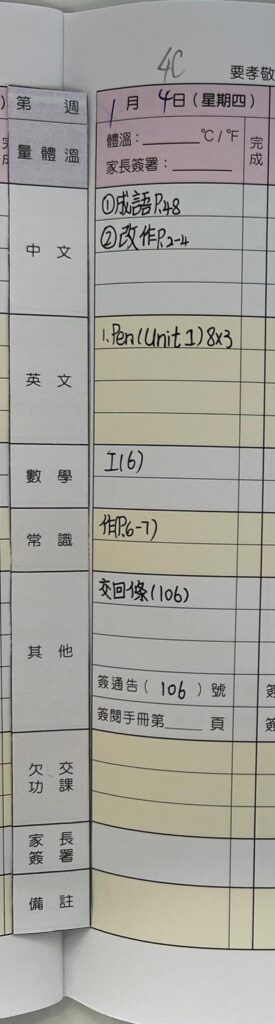 4C
要孝敬
第 週
1月 4日(星期四)
量體溫
體溫：______℃/℉
家長簽署：______
完成
中文
①成語P.48
②改作P.2-4
英文
1. Pen(Unit 1)8x3
數學
工(6)
常識
作(P.6-7)
其他
交回條(106)
簽通告( 106 )號
簽閱手冊第____頁
欠交功課
家長簽署
備註